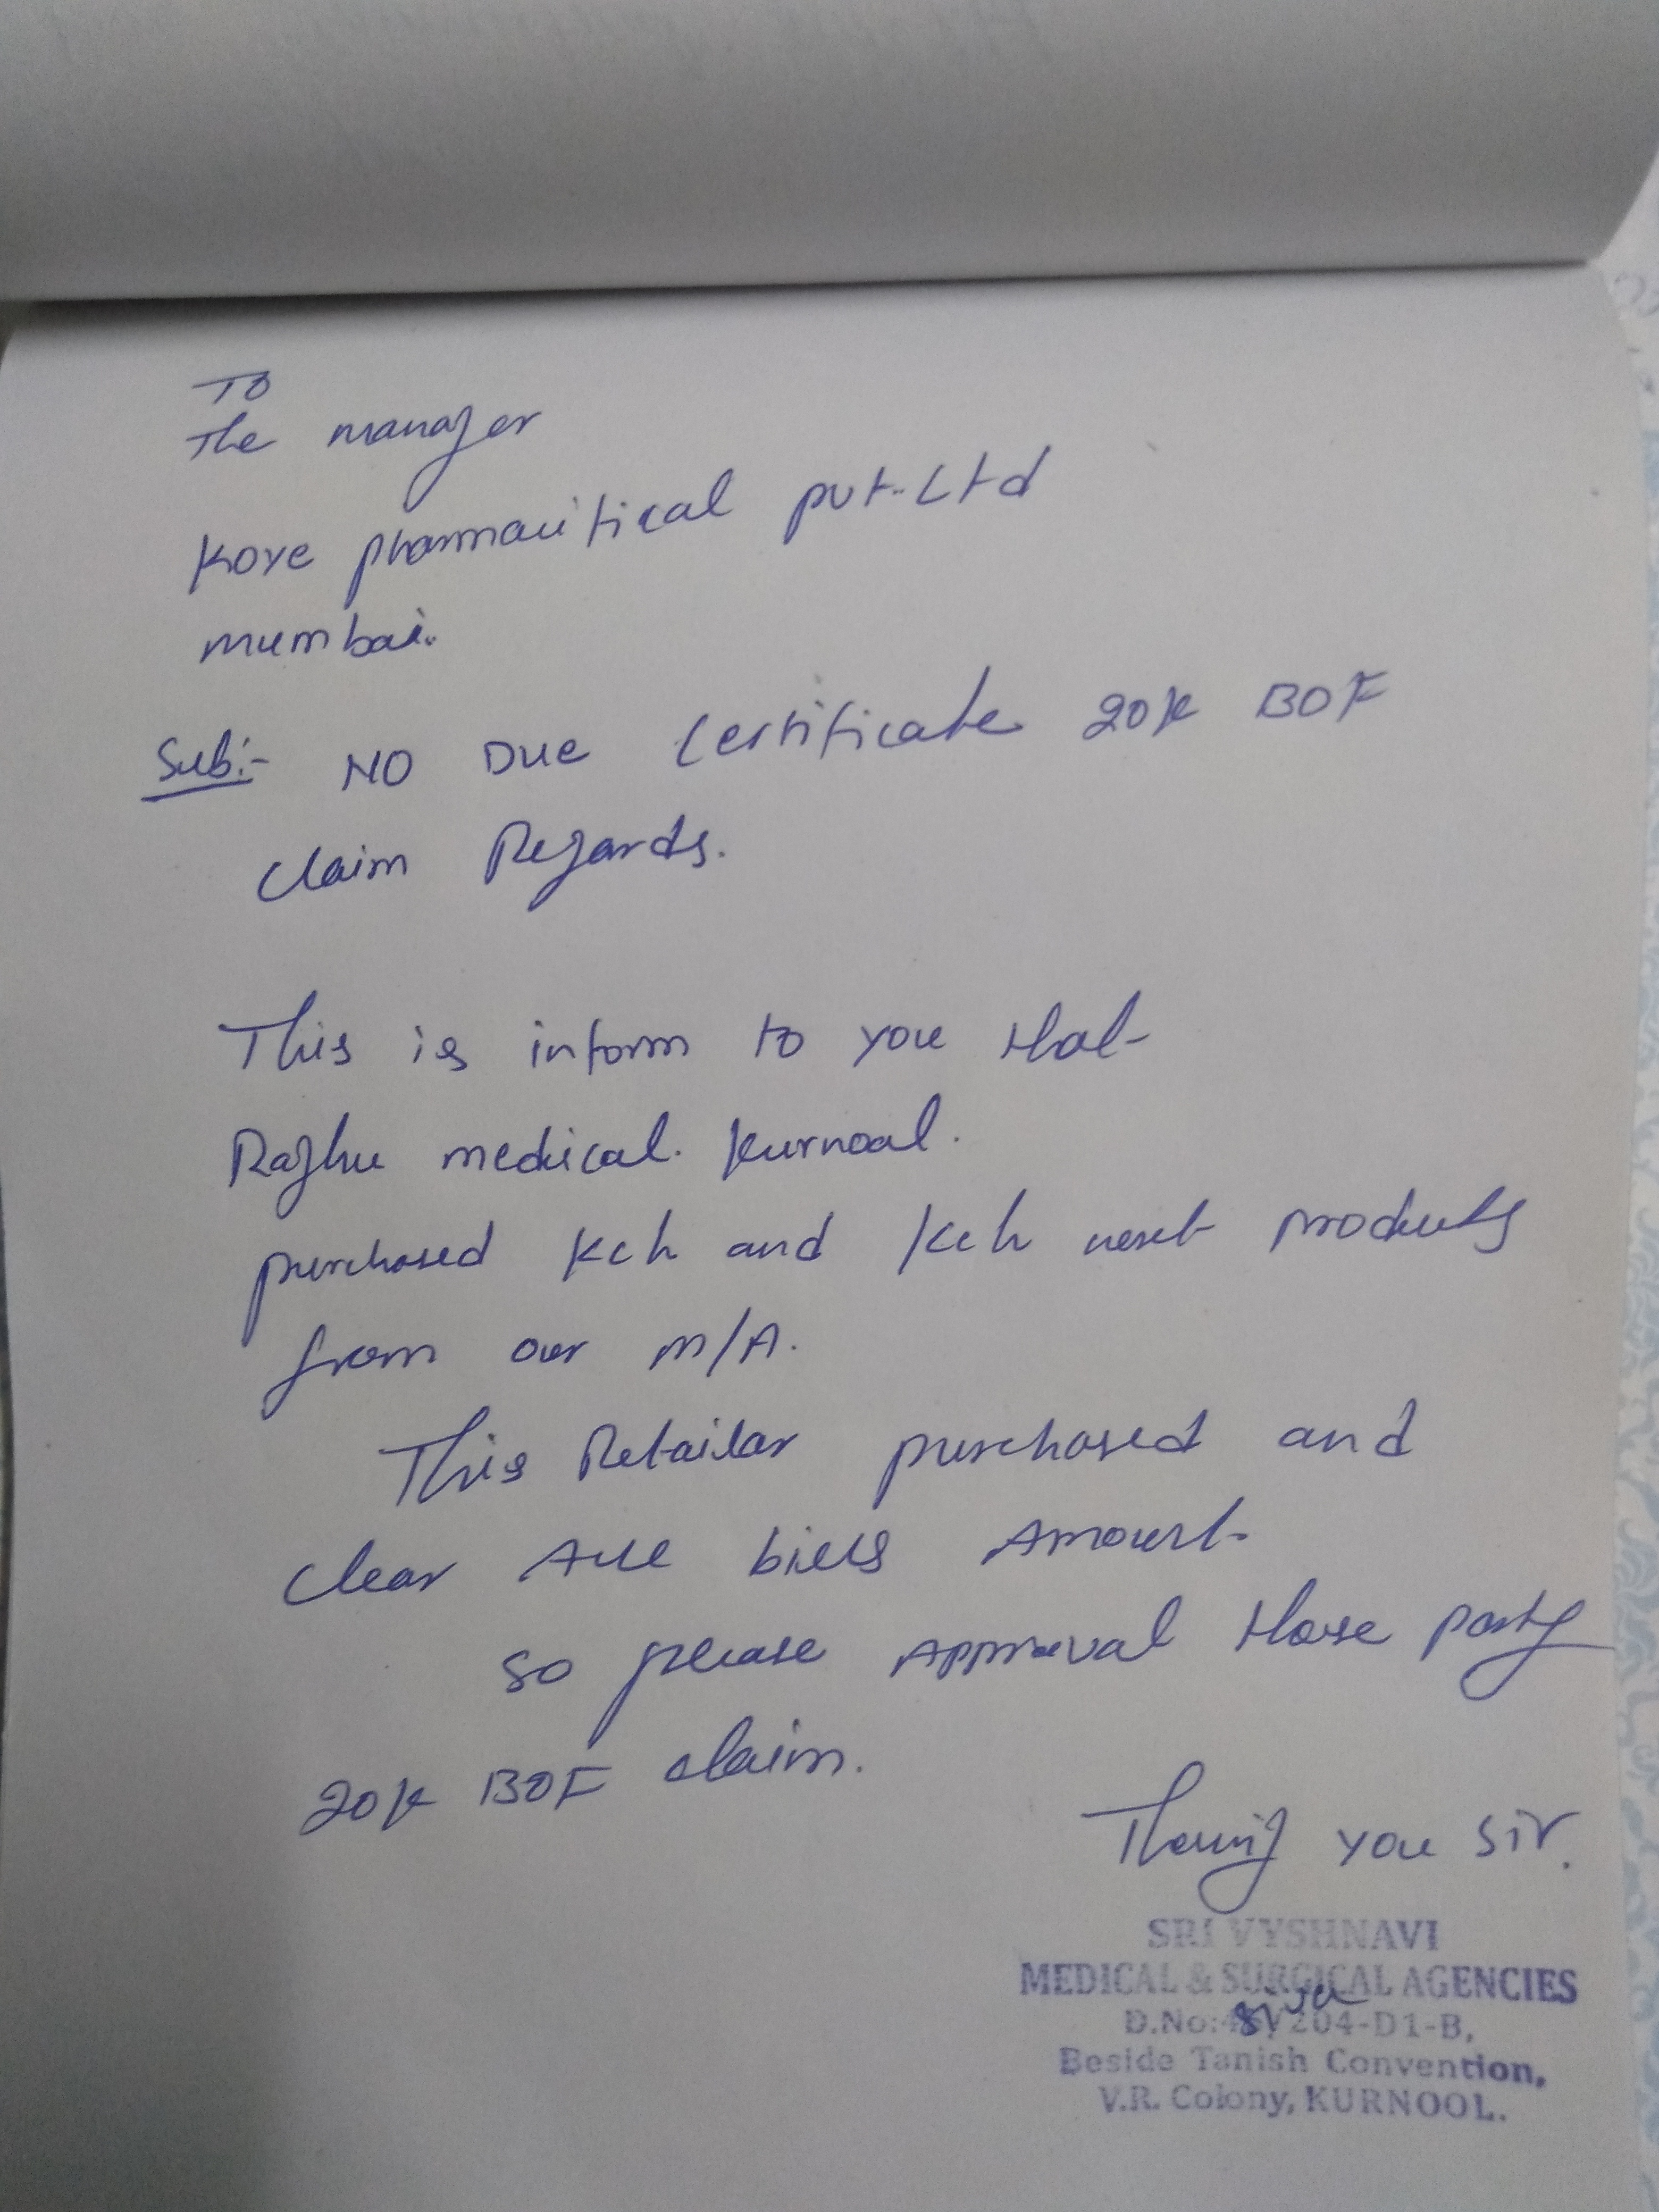 To
The manager
Kove pharmacitical pvt.Ltd
mumbai.
Sub:- NO Due Certificate 20k BOF
Claim Regards.
This is inform to you that
Raghu medical. Kurnoal.
purchased Kch and Kch next products
from our M/A.
This Retailar purchased and
Clear All bills Amount
so please Approval those party
20k BOF claim.
you sir.
SRI VYSHNAVI
MEDICAL & SURGICAL AGENCIES
siva
D.No: /204-D1-B,
Beside Tanish Convention,
V.R. Colony, KURNOOL.